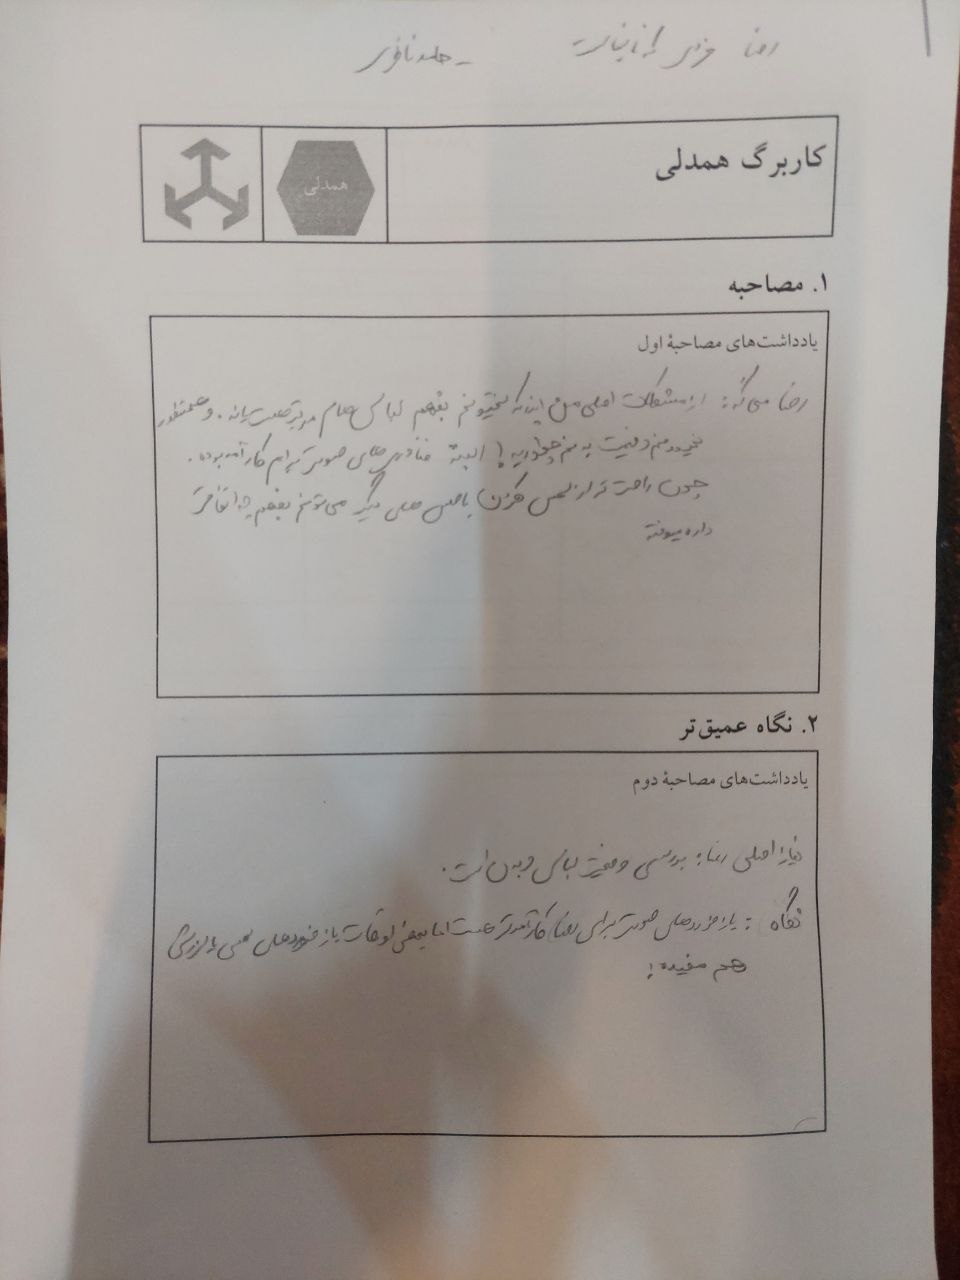 رضا فردی که نابیناست - جلسه نافری
کاربرگ همدلی
همدلی
۱. مصاحبه
یادداشت‌های مصاحبهٔ اول
رضا می‌گه: از مشکلات اصلی من اینه که نمیتونم بفهم لباس هام مرتب هست یا نه. و همینطور
نمیدونم وضعیت بدنم چطوریه! البته فناوری های صوتی برام کارآمد بوده.
چون راحت تر از لمس کردن یا حس های دیگر می‌تونم بفهم چه اتفاقی
داره میوفته
۲. نگاه عمیق‌تر
یادداشت‌های مصاحبهٔ دوم
نیاز اصلی رضا: بررسی وضعیت لباس و بدن است.
نگاه: بازخوردهای صوتی برای رضا کارآمدتر هست اما بعضی اوقات بازخوردهای لمسی یا لرزشی
هم مفیده!